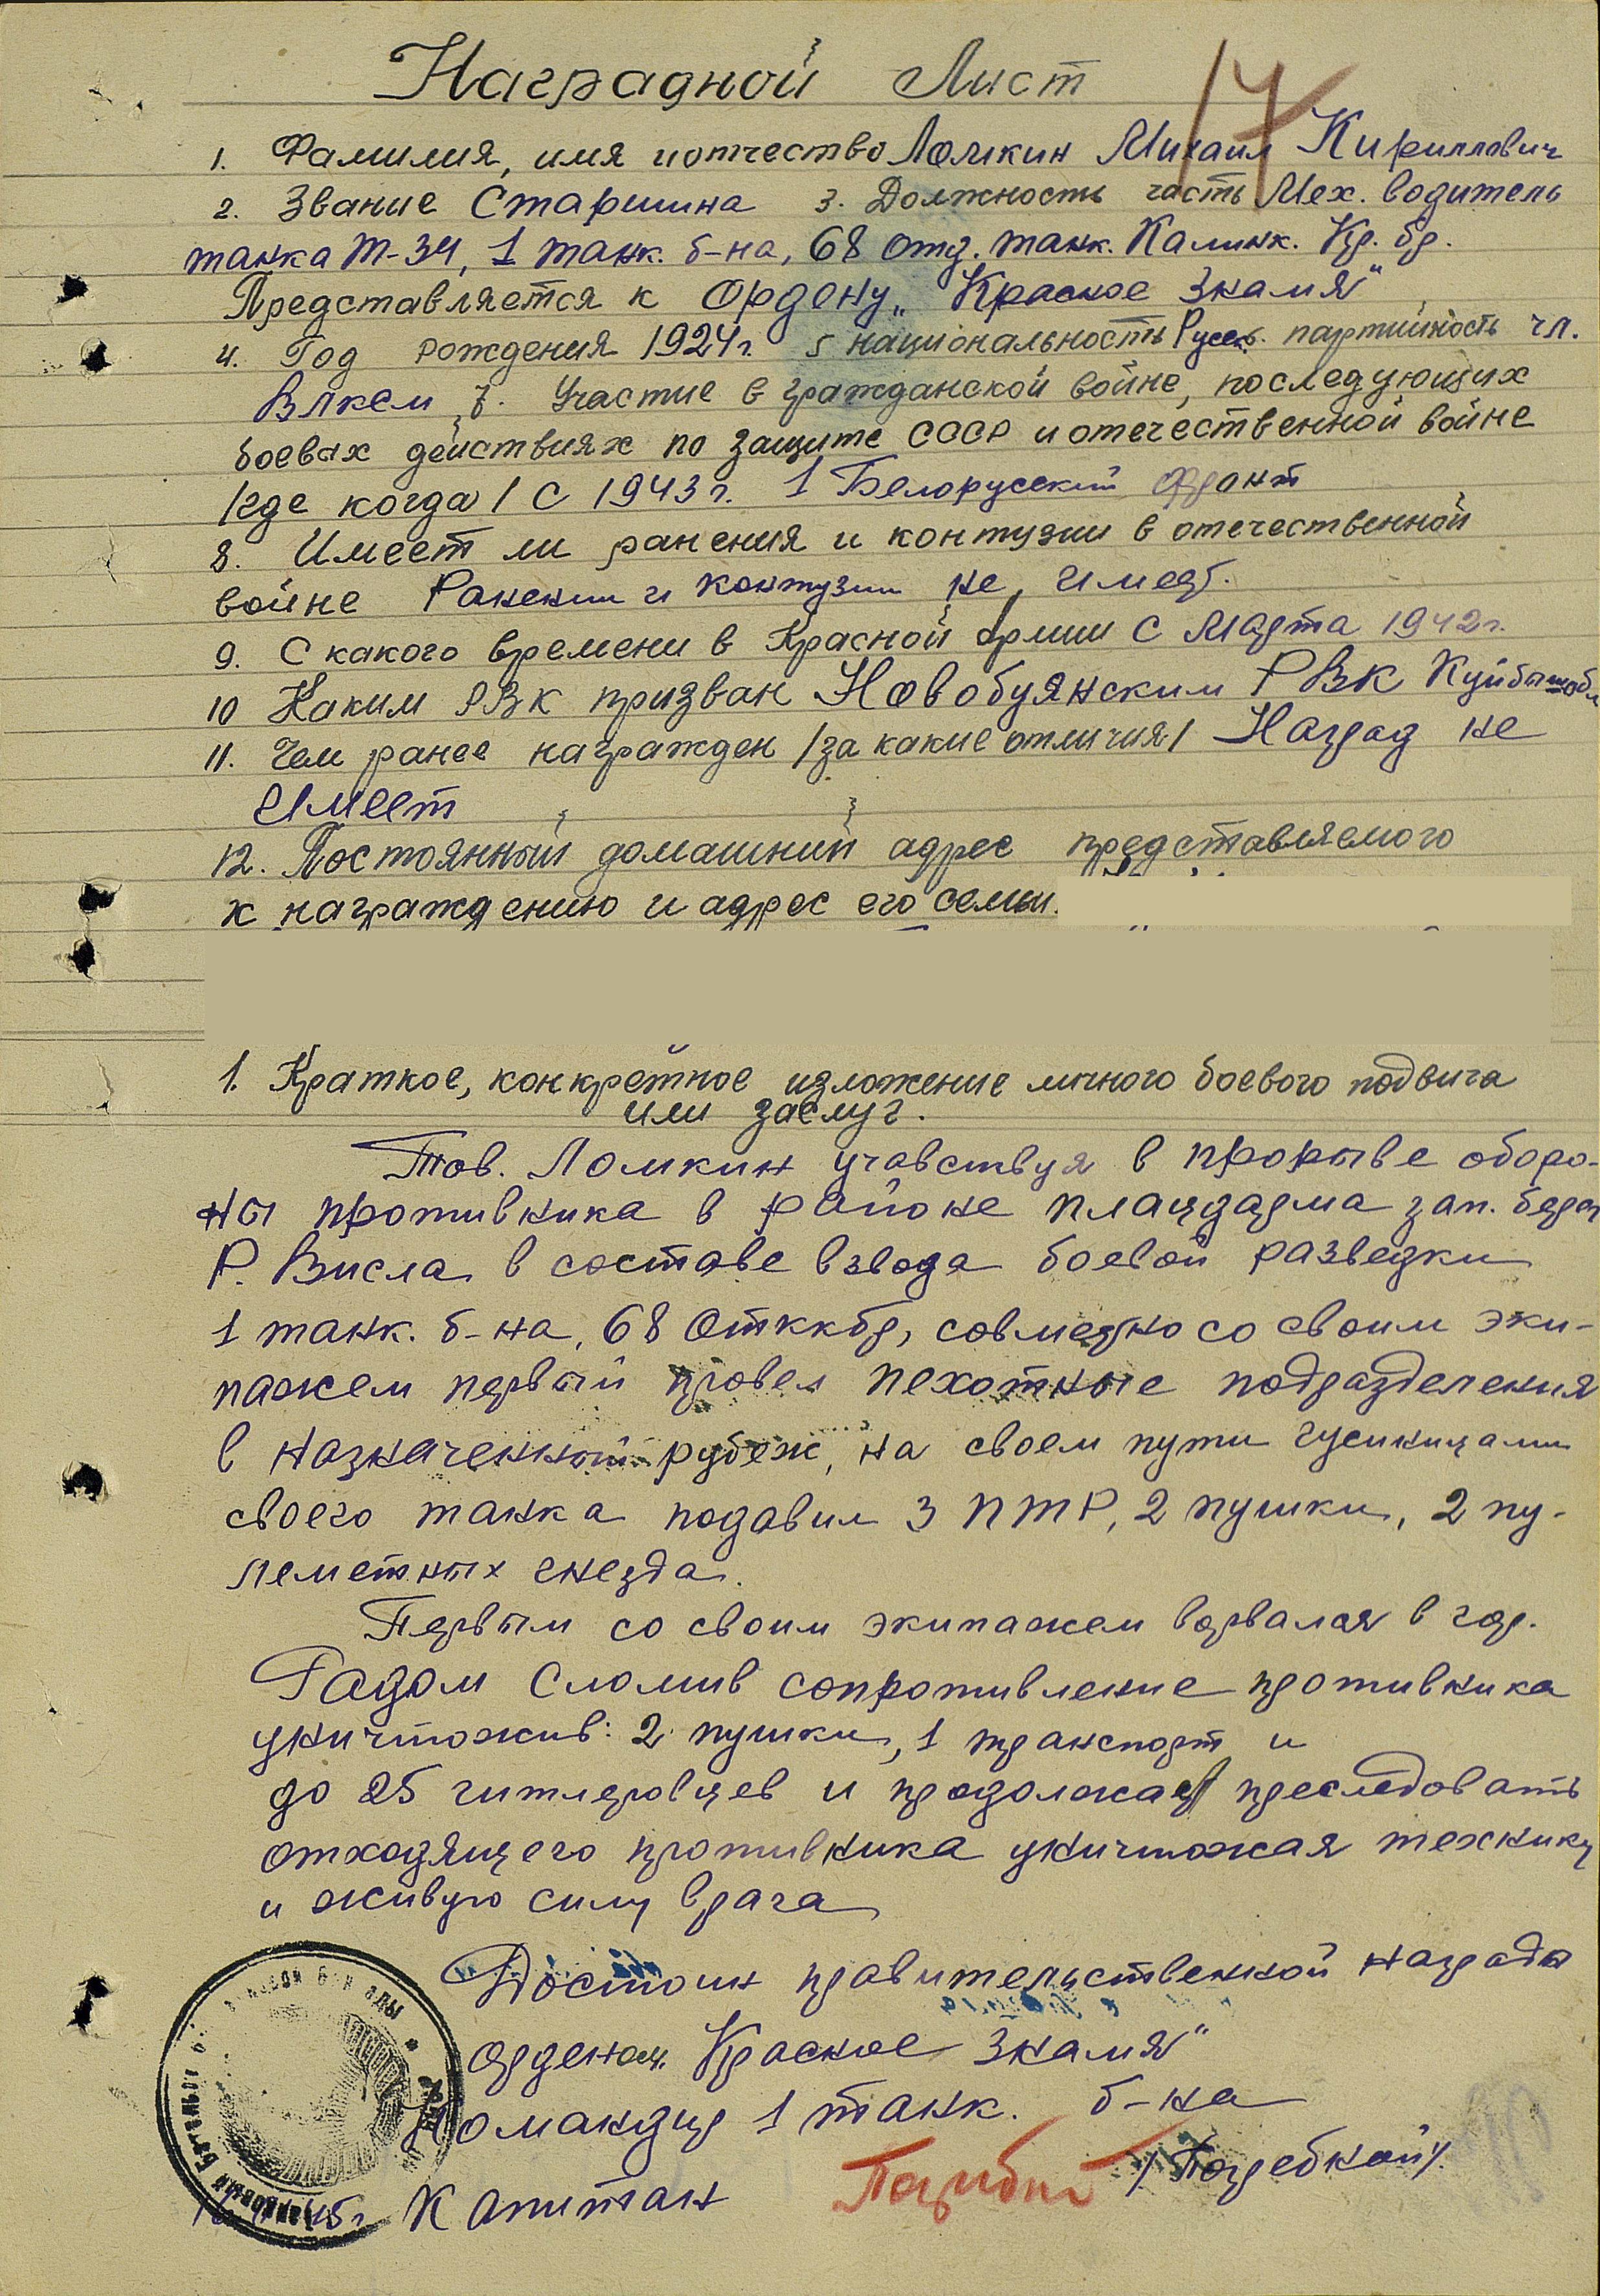 Наградной Лист
17
1. Фамилия, имя и отчество Ломкин Михаил Кириллович
2. Звание Старшина 3. Должность часть Мех. водитель
танка Т-34, 1 танк. б-на, 68 отд. танк. Калинк. Кр. бр.
Представляется к Ордену „Красное Знамя"
4. Год рождения 1924г. 5 национальность Русск. партийность чл.
Влксм 7. Участие в гражданской войне, последующих
боевых действиях по защите СССР и отечественной войне
/где когда/ С 1943г. 1 Белорусский фронт
8. Имеет ли ранения и контузии в отечественной
войне Ранений и контузии не имеет.
9. С какого времени в Красной Армии С Марта 1942г.
10 Каким РВК призван Новобуянским РВК Куйбыш обл
11. Чем ранее награжден /за какие отличия/ Наград не
Имеет
12. Постоянный домашний адрес представляемого
к награждению и адрес его семьи.
1. Краткое, конкретное изложение личного боевого подвига
или заслуг.
Тов. Ломкин учавствуя в прорыве оборо-
ны противника в районе плацдарма зап. берег
Р. Висла в составе взвода боевой разведки
1 танк. б-на, 68 Отккбр, совместно со своим эки-
пажем первый провел пехотные подразделения
в назначенный рубеж, на своем пути гусиницами
своего танка подавил 3 ПТР, 2 пушки, 2 пу-
леметных гнезда.
Первым со своим экипажем ворвался в гор.
Радом Сломив сопротивление противника
уничтожив: 2 пушки, 1 транспорт и
до 25 гитлеровцев и продолжает преследовать
отходящего противника уничтожая технику
и живую силу врага
Достоин правительственной награды
орденом „Красное Знамя"
Командир 1 танк. б-на
45г. Капитан /Поцебкой/